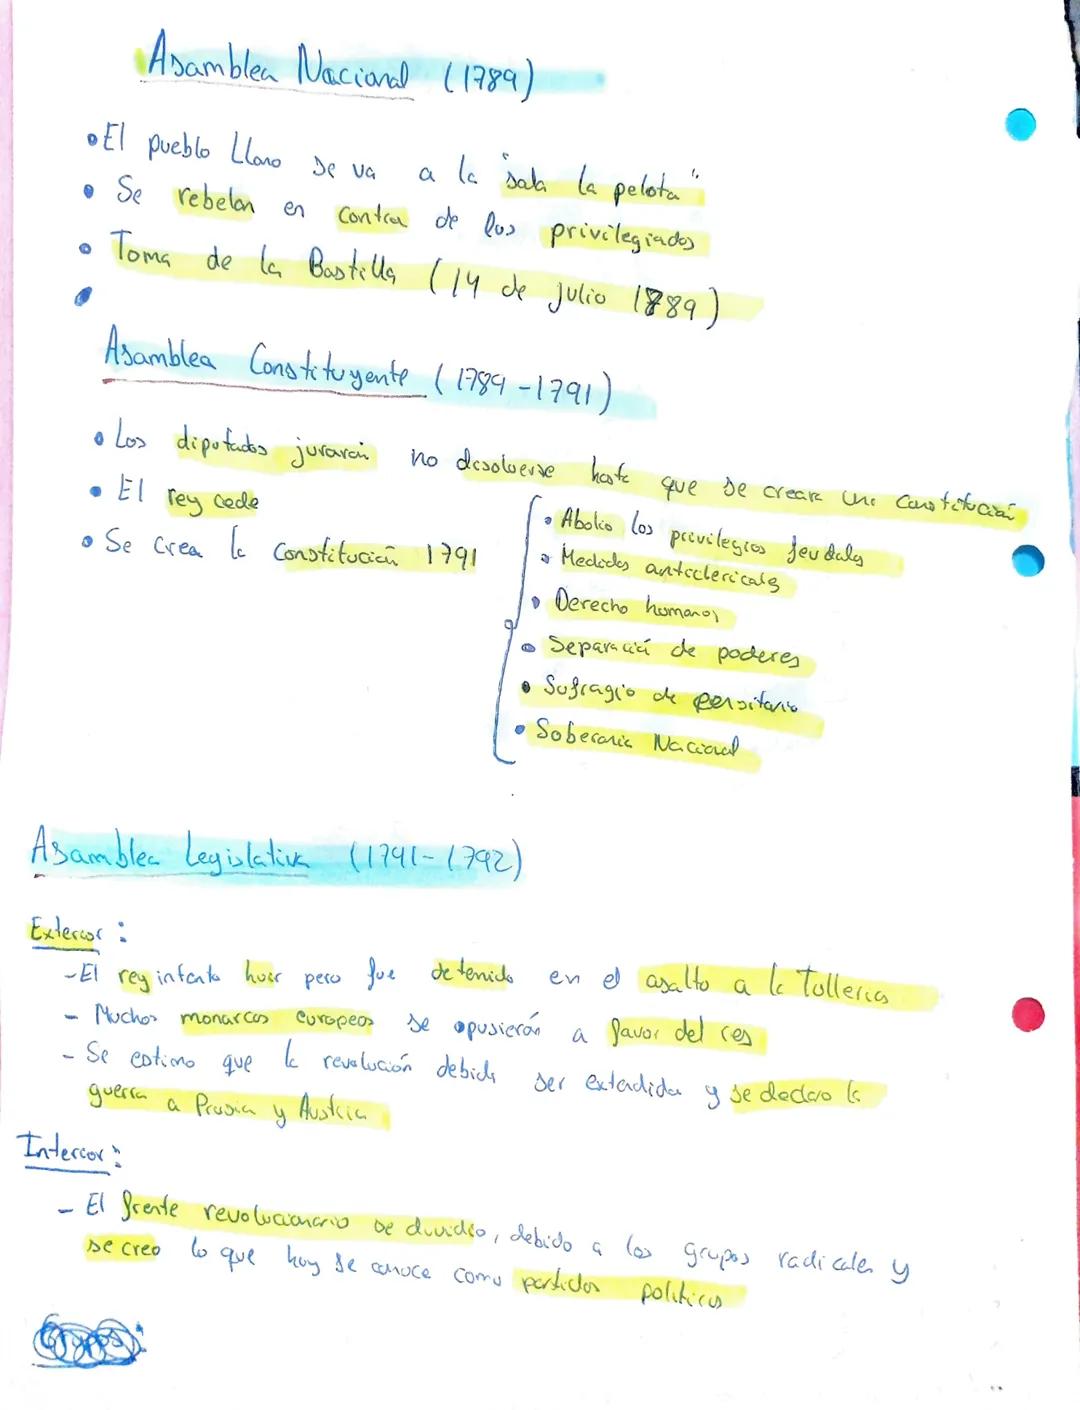 Asamblea Nacional (1789)
• El pueblo Llano se va a la "sala la pelota"
• Se rebelan en contra de los privilegiados
• Toma de la Bastilla (14 de julio 1789)
•
Asamblea Constituyente (1789-1791)
• Los diputados juraran no disolverse hasta que se creara una constitución
• El rey cede
• Se crea la constitución 1791
• Abolio los privilegios feudales
• Medidas anticlericales
• Derecho humanos
• Separación de poderes
• Sufragio de
• Soberania Nacional
Asamblea Legislativa (1791-1792)
Exterior:
- El rey intento huir pero fue detenido en el asalto a la Tullerias
- Muchos monarcas europeos se opusierón a favor del rey
- Se estimo que la revolución debida ser extendida y se declaro la
guerra a Prusia y Austria
Interior:
- El frente revolucionario se dividio, debido a los grupos radicales y
se creo lo que hoy se conoce como partidos politicos